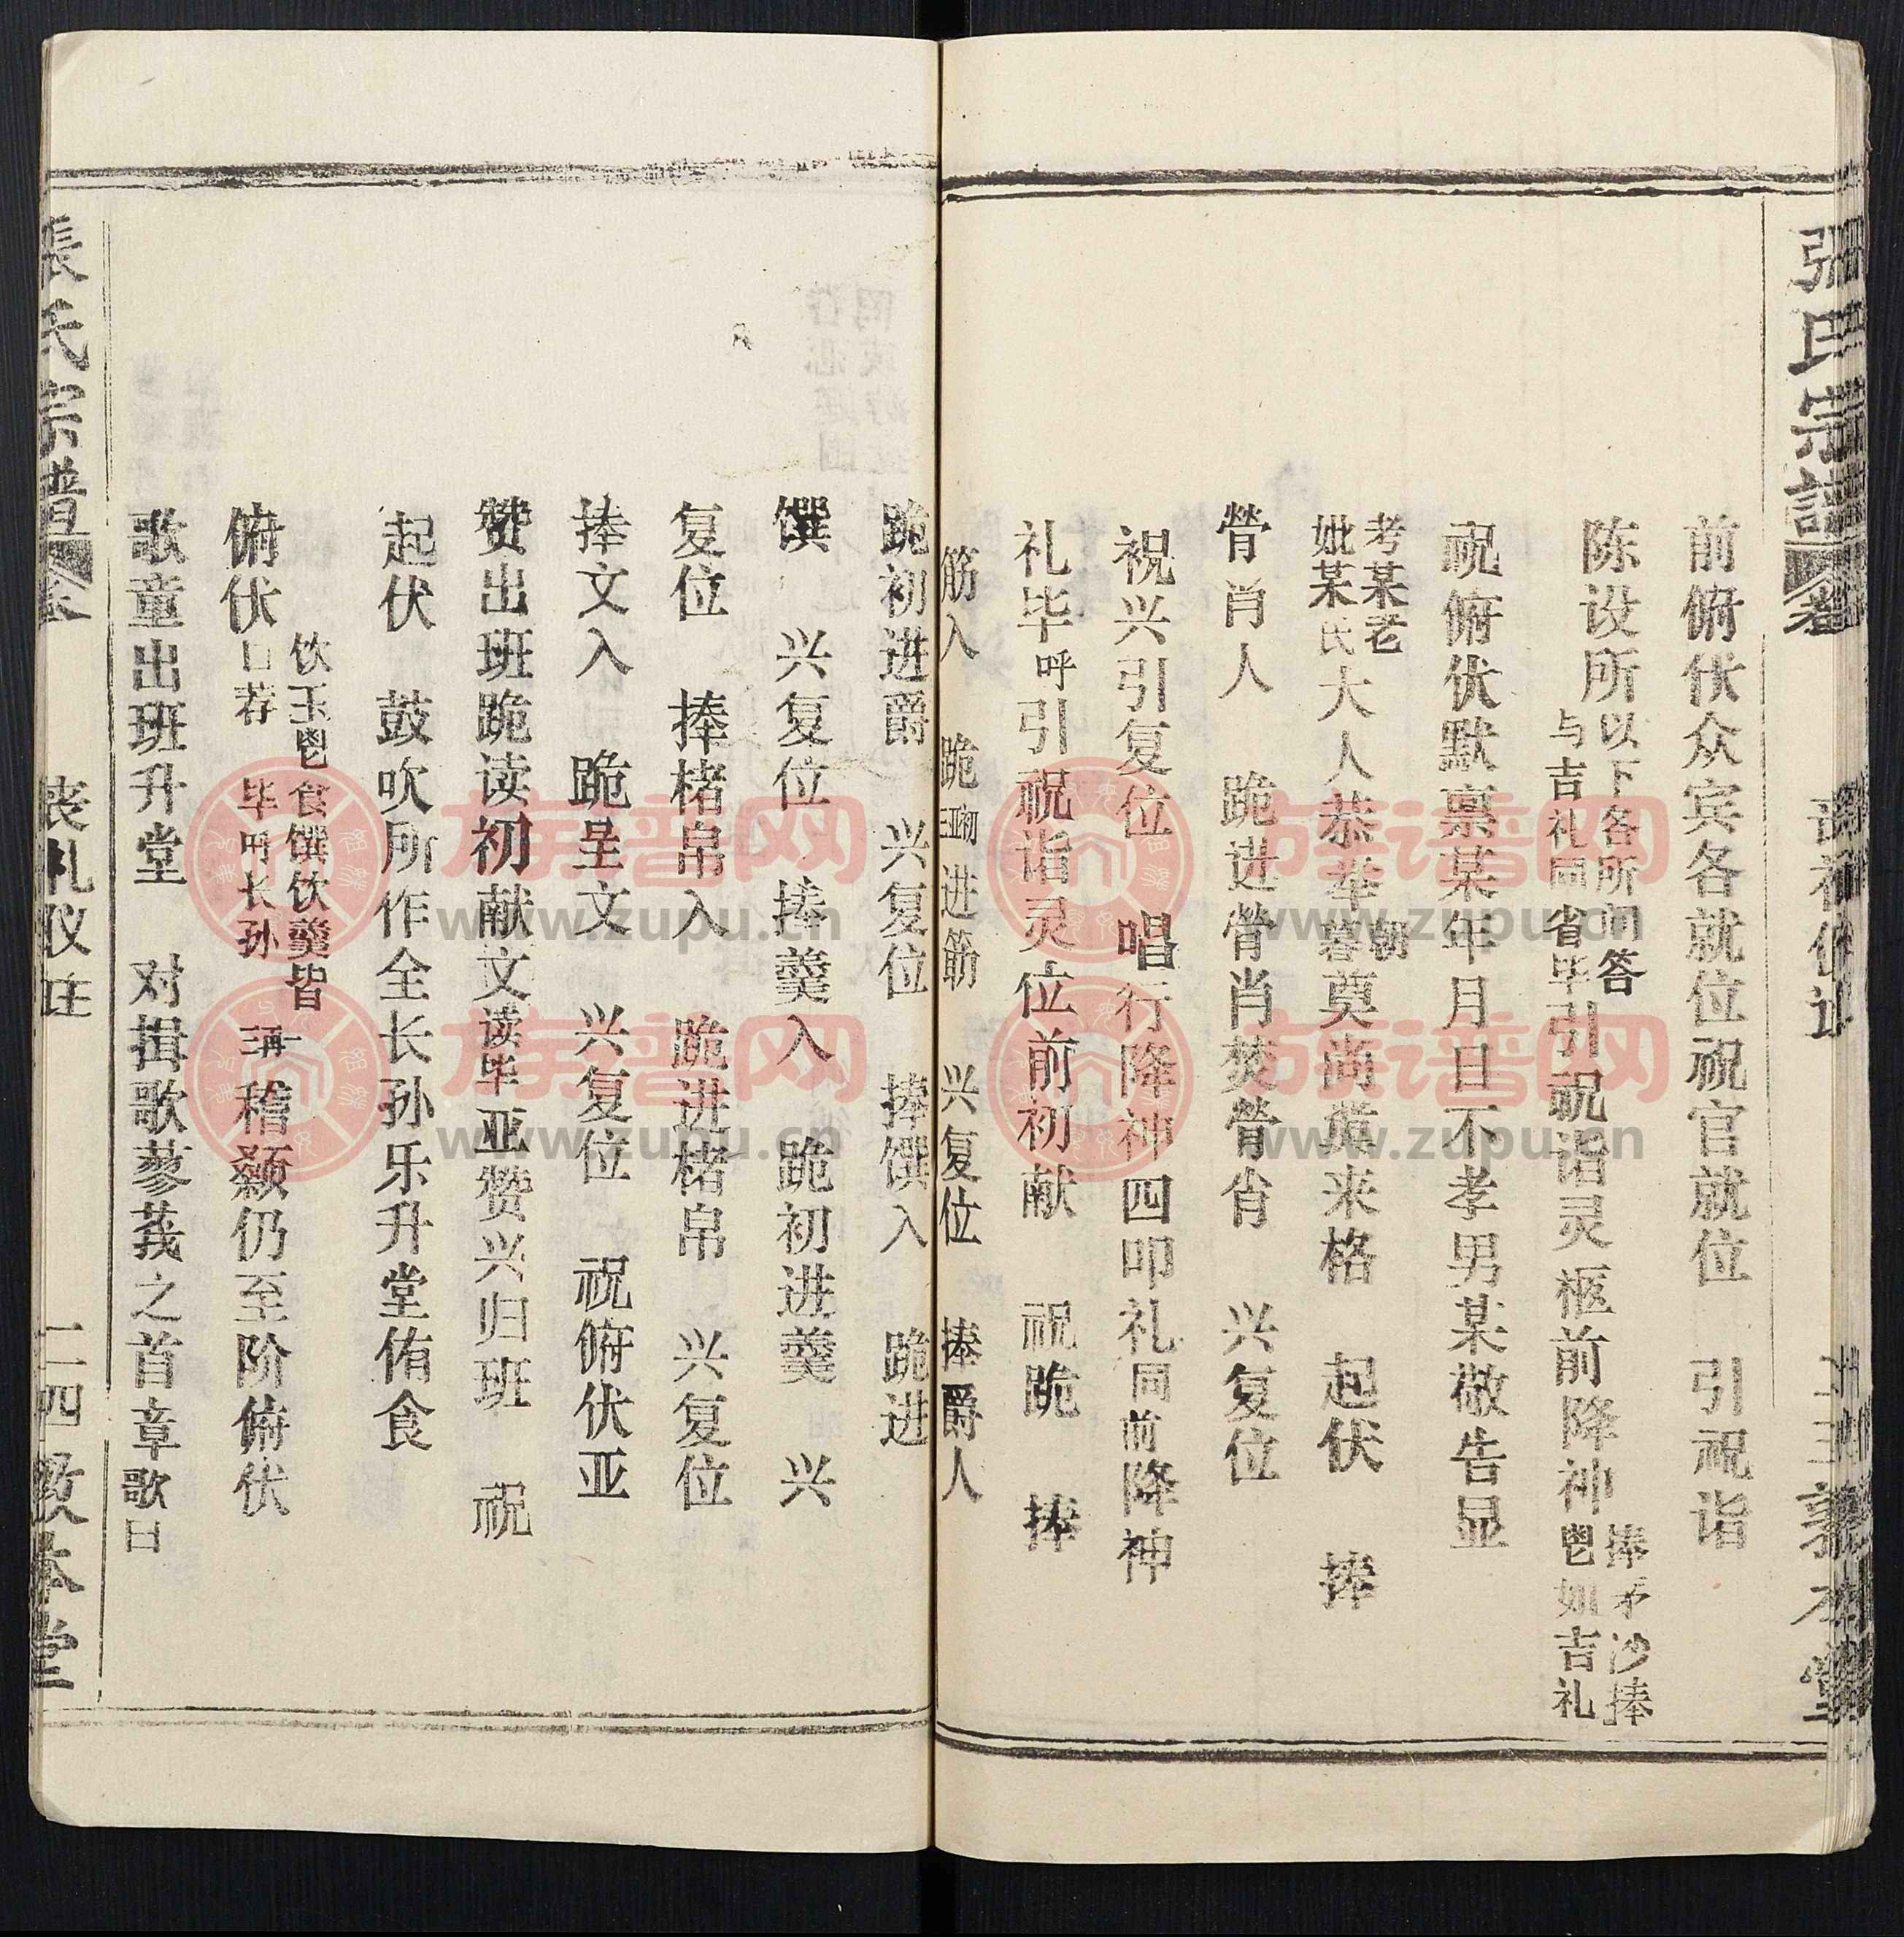 张氏宗譜
前俯伏众宾各就位祝官就位 引祝诣
陈设所以下各所问答与吉礼同省毕引祝诣灵柩前降神捧茅沙捧鬯如吉礼
祝俯伏默禀某年月日不孝男某敬告显
考某老妣某氏大人恭举朝暮奠尚飨来格 起伏 捧
膋肖人 跪进膋肖焚膋肖 兴复位
祝兴引复位 唱行降神四叩礼同前降神
礼毕呼引祝诣灵位前初献 祝跪 捧
筋入 跪初亚三进筋 兴复位 捧爵人
跪初进爵 兴复位 捧馔入 跪进
馔 兴复位 捧羹入 跪初进羹 兴
复位 捧楮帛入 跪进楮帛 兴复位
捧文入 跪呈文 兴复位 祝俯伏亚
赞出班跪读初献文读毕亚赞兴归班 祝
起伏 鼓吹所作全长孙乐升堂侑食
饮玉鬯食馔饮羹皆
俯伏日荐 毕呼长孙 一再三稽颡仍至阶俯伏
歌童出班升堂 对揖歌蓼莪之首章歌曰
張氏宗譜
丧礼仪注
二四 敦本堂